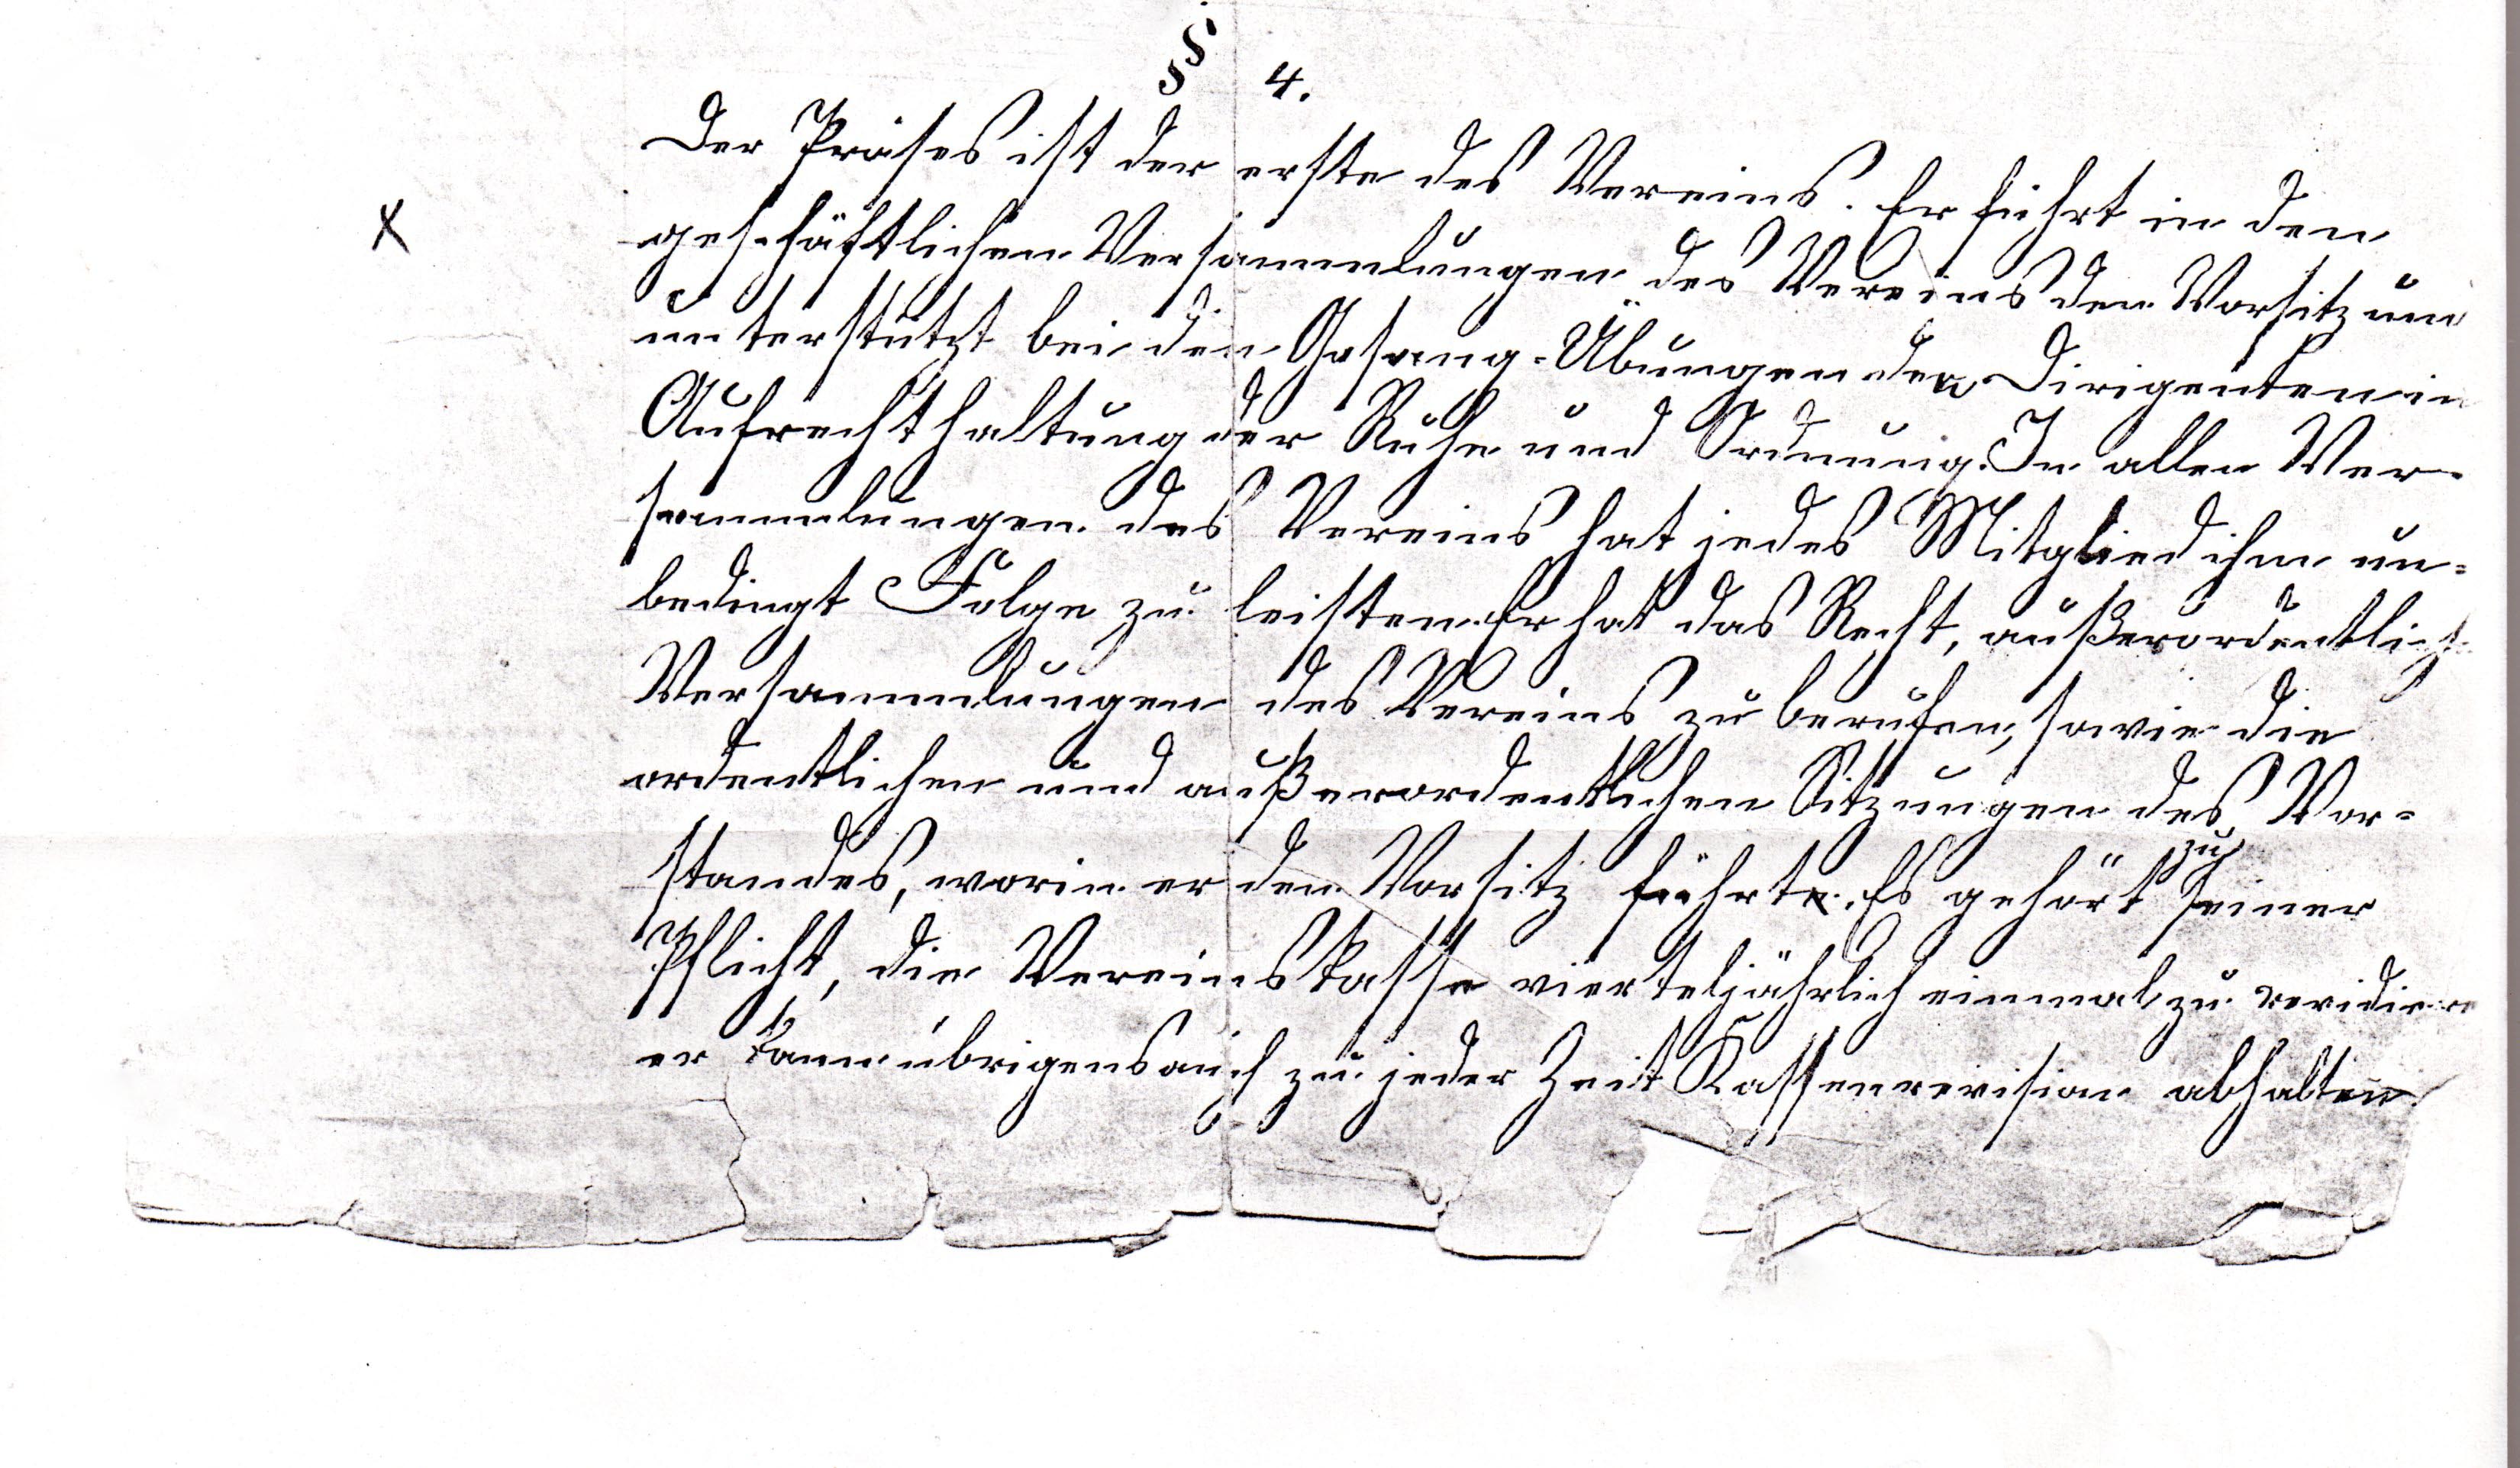 § 4.
Der Präses ist der erste des Vereins. Er führt in den
x
geschäftlichen Versammlungen des Vereins den Vorsitz und
unterstützt bei den Gesang-Übungen den Dirigenten in
Aufrechthaltung der Ruhe und Ordnung. In allen Ver-
sammlungen des Vereins hat jedes Mitglied ihm un=
bedingt Folge zu leisten. Er hat das Recht, außerordentliche
Versammlungen des Vereins zu berufen, sowie die
ordentlichen und außerordentlichen Sitzungen des Vor=
standes, worin er den Vorsitz führt. Es gehört zu seiner
Pflicht, die Vereinskasse vierteljährlich einmal zu revidiren
er kann übrigens auch zu jeder Zeit Kassenrevision abhalten